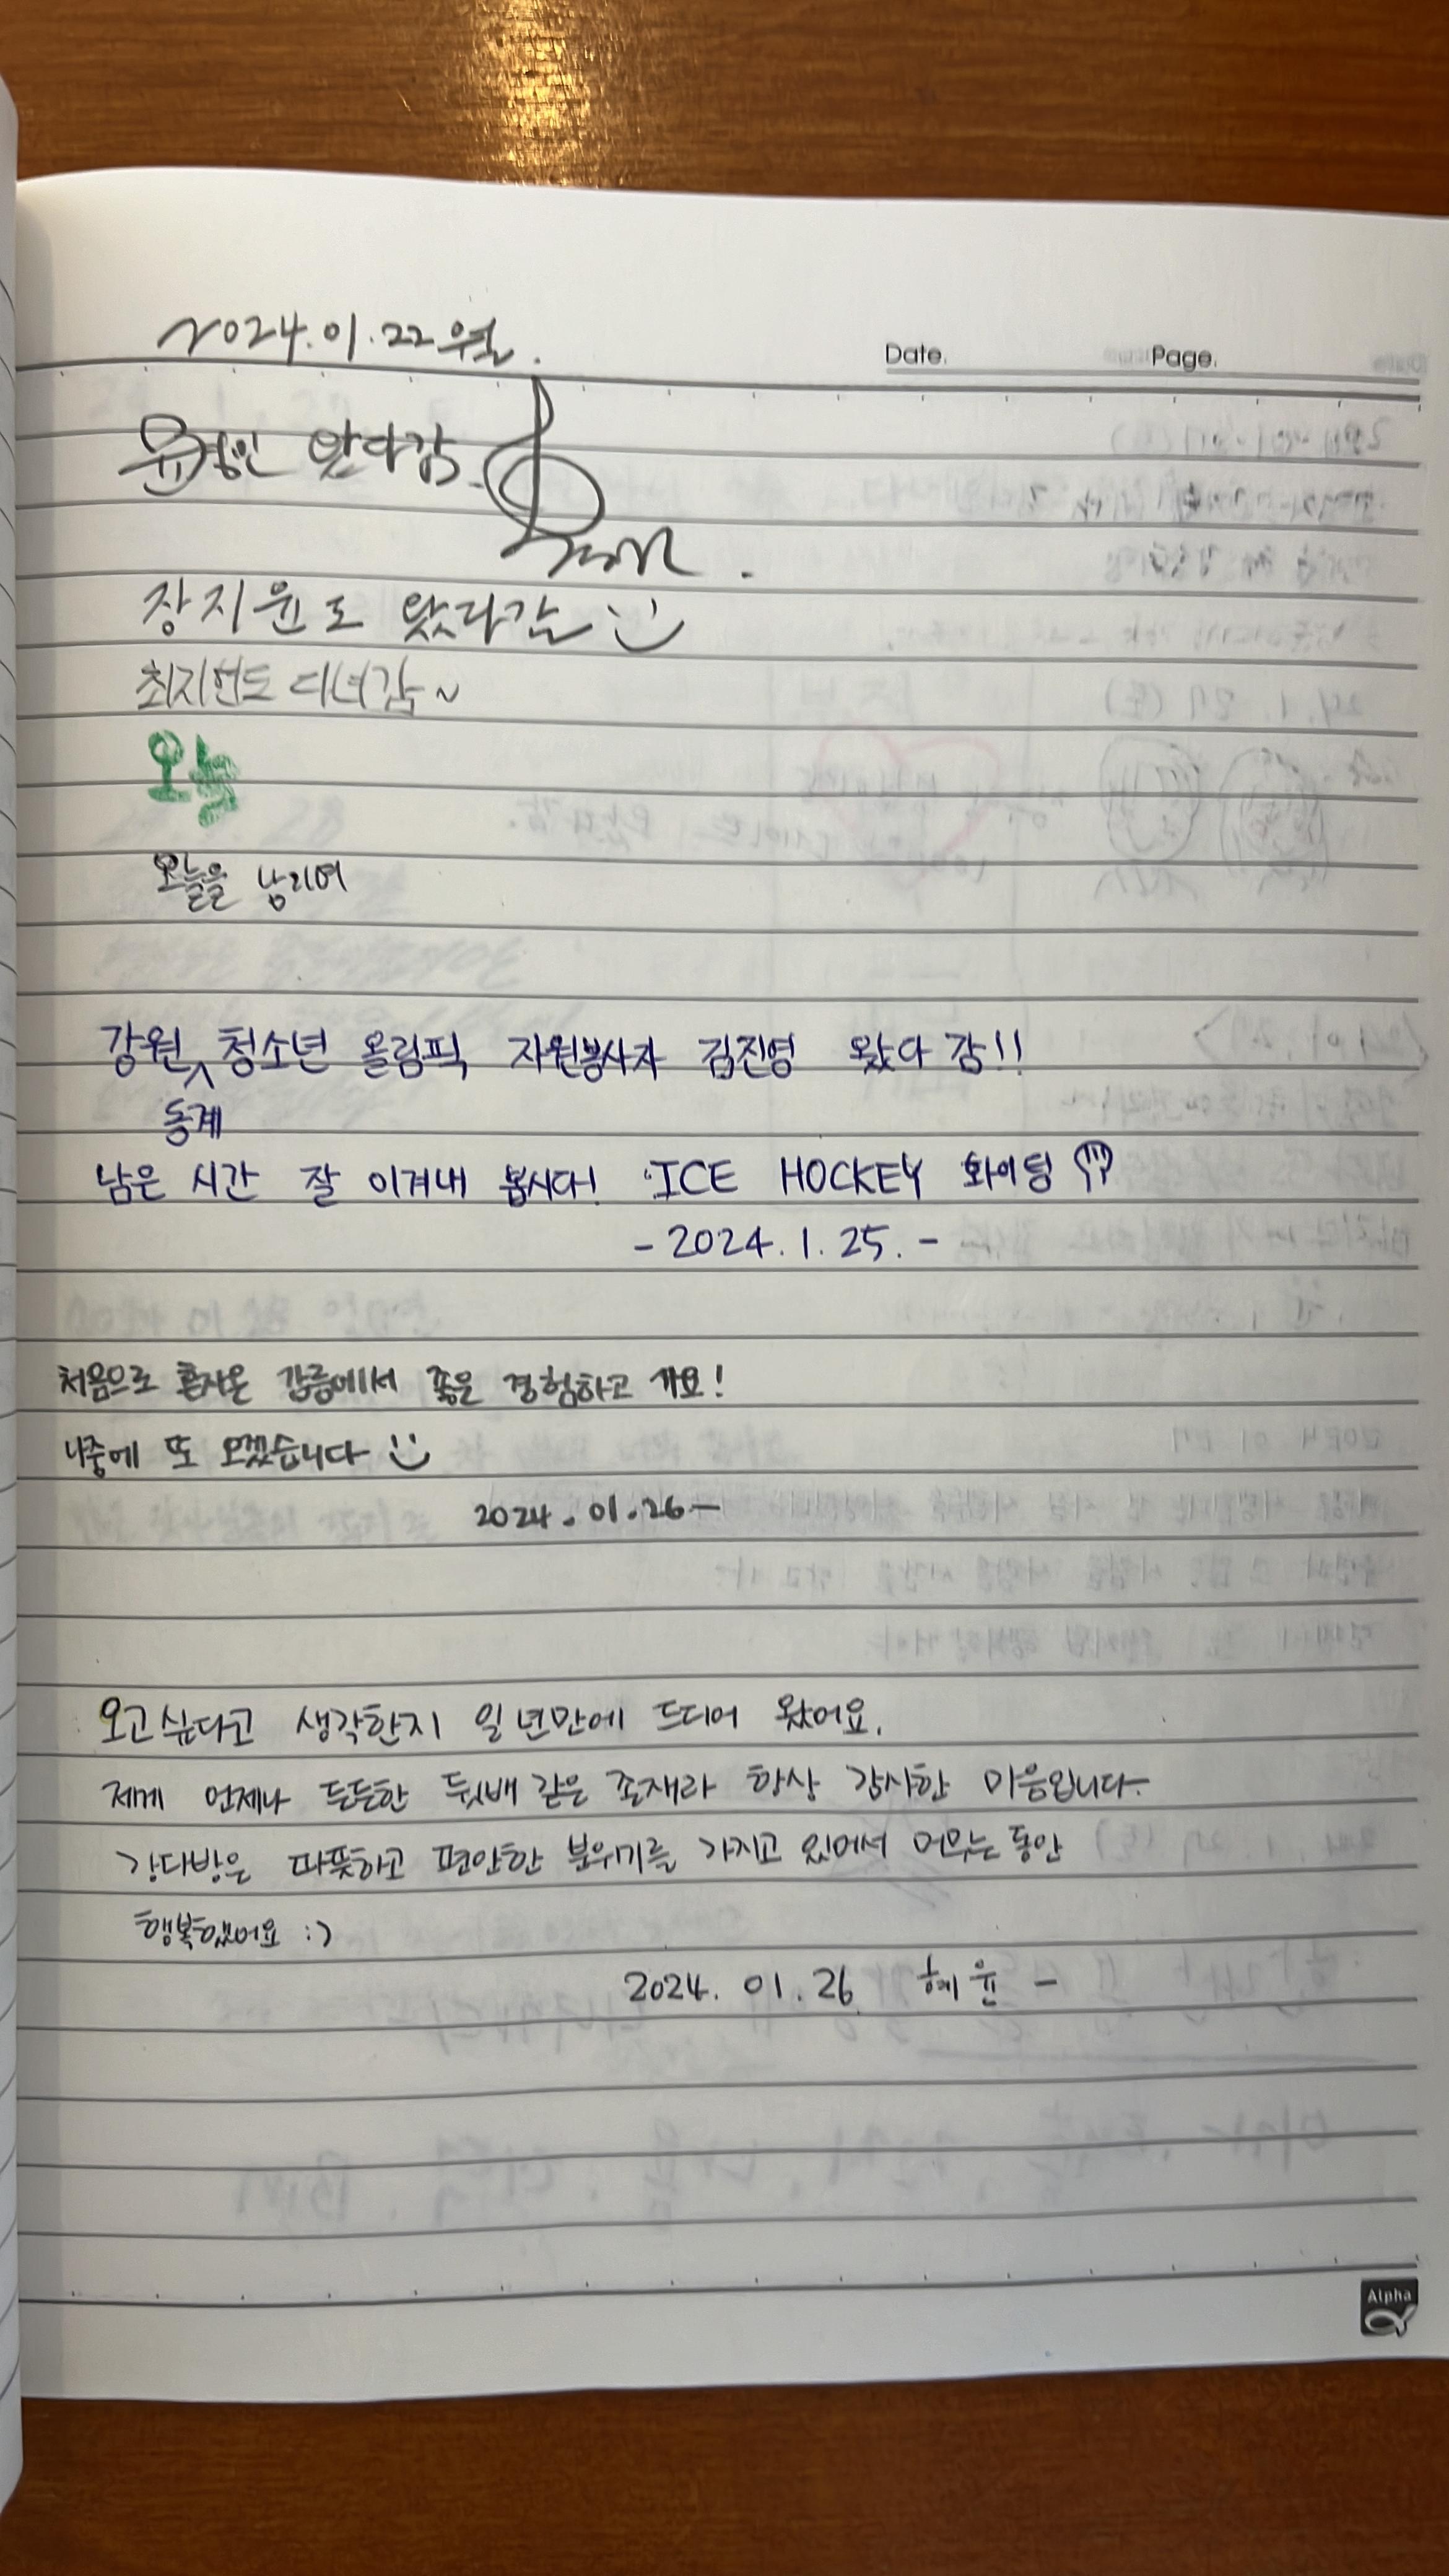 2024.01.22 월.
Date. Page.
왔다감.
장지윤도 왔다감
최지현도 다녀감~
오늘
오늘을 남기며
강원 동계 청소년 올림픽 자원봉사자 김진영 왔다 감!!
남은 시간 잘 이겨내 봅시다! ICE HOCKEY 화이팅
- 2024.1.25. -
처음으로 혼자온 강릉에서 좋은 경험하고 가요!
나중에 또 오겠습니다
2024.01.26-
오고싶다고 생각한지 일년만에 드디어 왔어요.
제게 언제나 든든한 뒷배 같은 존재라 항상 감사한 마음입니다.
강다방은 따뜻하고 편안한 분위기를 가지고 있어서 머무는 동안
행복했어요 :)
2024. 01. 26 혜윤 -
Alpha